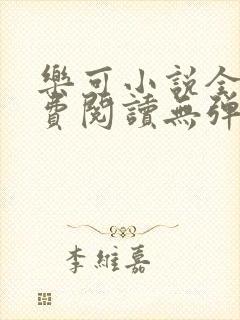 樂可小說全
費閱讀無彈
李維嘉